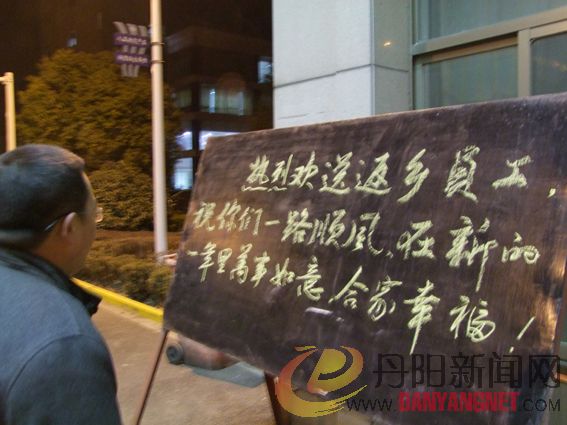 热烈欢送返乡員工,
祝你们一路顺風,在新的
一年里萬事如意,合家幸福!
丹阳新闻网
WWW.DANYANGNET.COM